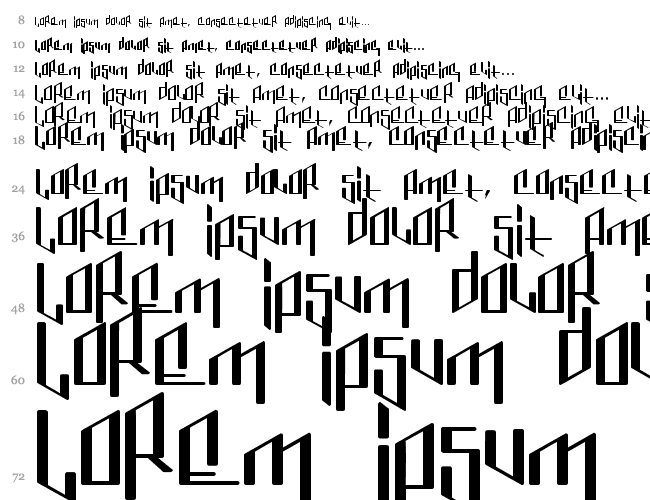 8 Lorem ipsum dolor sit amet, consectetuer adipiscing elit...
10 Lorem ipsum dolor sit amet, consectetuer adipiscing elit...
12 Lorem ipsum dolor sit amet, consectetuer adipiscing elit...
14 Lorem ipsum dolor sit amet, consectetuer adipiscing elit...
16 Lorem ipsum dolor sit amet, consectetuer adipiscing elit
18 Lorem ipsum dolor sit amet, consectetuer adipisci
24 Lorem ipsum dolor sit amet, consecte
36 Lorem ipsum dolor sit ame
48 Lorem ipsum dolor s
60 Lorem ipsum dol
72 Lorem ipsum